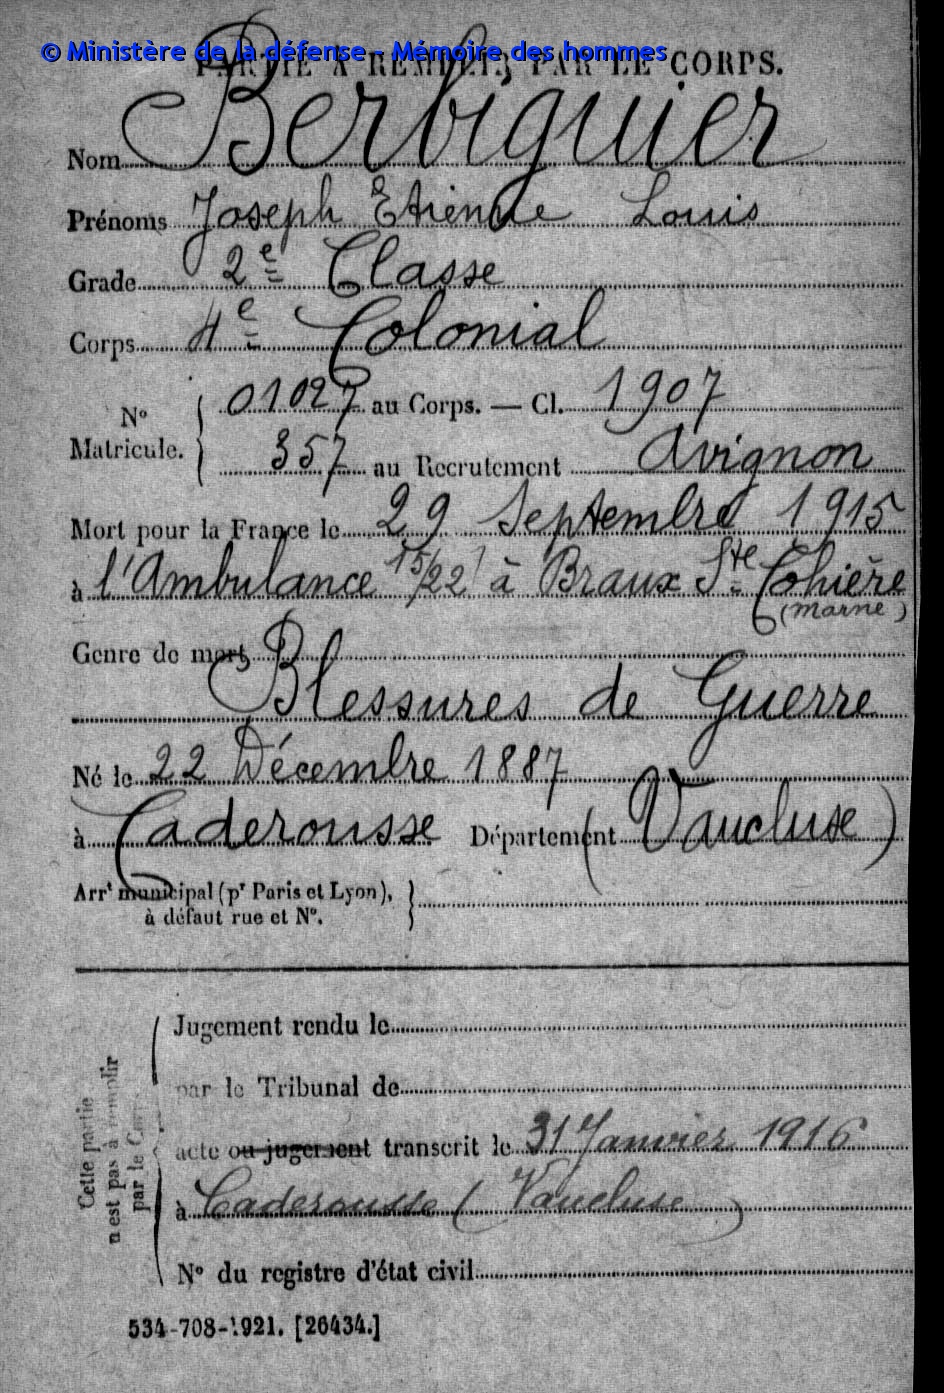 © Ministère de la défense - Mémoire des hommes
PARTIE A REMPLIR PAR LE CORPS.
Nom Berbiguier
Prénoms Joseph Etienne Louis
Grade 2e Classe
Corps 4e Colonial
No Matricule. { 01027 au Corps. — Cl. 1907
357 au Recrutement Avignon
Mort pour la France le 29 Septembre 1915
à l'Ambulance 15/22 à Braux Ste Cohière
(Marne)
Genre de mort
Blessures de Guerre
Né le 22 Décembre 1887
à Caderousse Département (Vaucluse)
Arrt municipal (pr Paris et Lyon), }
à défaut rue et No.
Cette partie
n'est pas à remplir
par le Corps.
Jugement rendu le
par le Tribunal de
acte ou jugement transcrit le 31 Janvier 1916
à Caderousse (Vaucluse)
No du registre d'état civil
534-708-1921. [26434.]